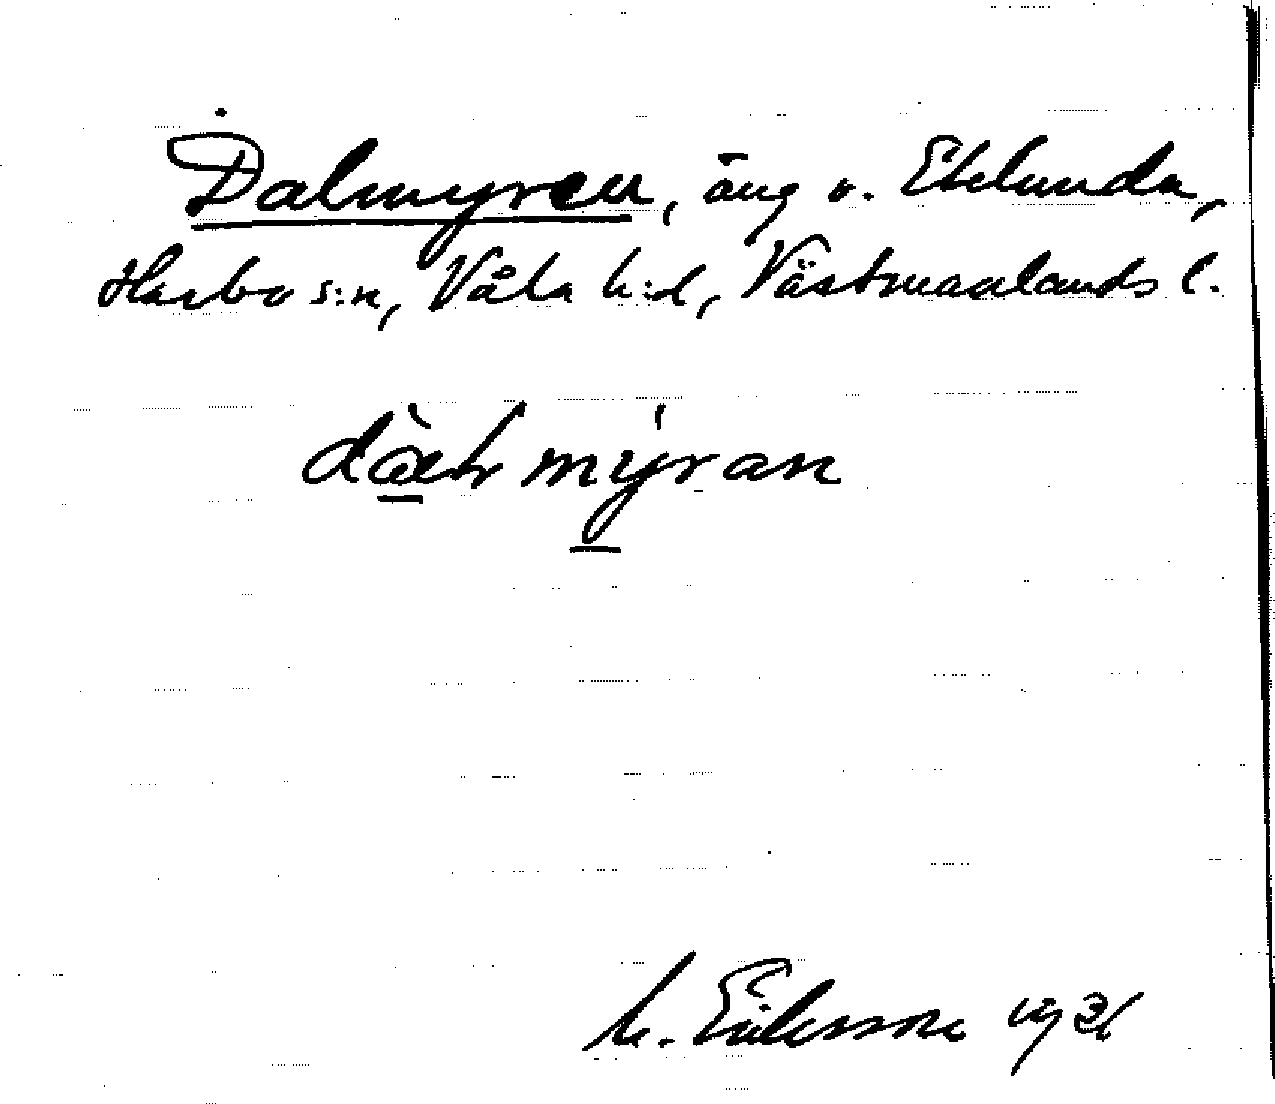 Dalmyren, äng v. Ekelunda,
Harbo s:n, Våla h:d, Västmanlands l.
myran
M. Eriksson 1921